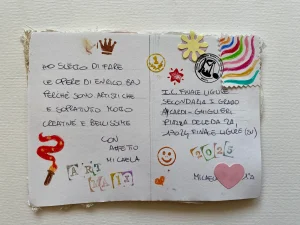 HO SCELTO DI FARE
LE OPERE DI ENRICO BAJ
PERCHÉ SONO ARTISTICHE
E SOPRATUTTO MOLTO
CREATIVE E BELLISSIME
CON
AFFETTO
MICAELA
ART
I.C. FINALE LIGURE
SECONDARIA I GRADO
AICARDI-GHIGLIERI
PIAZZA DELEDDA 2A,
17024 FINALE LIGURE (SV)
2025
MICAELA